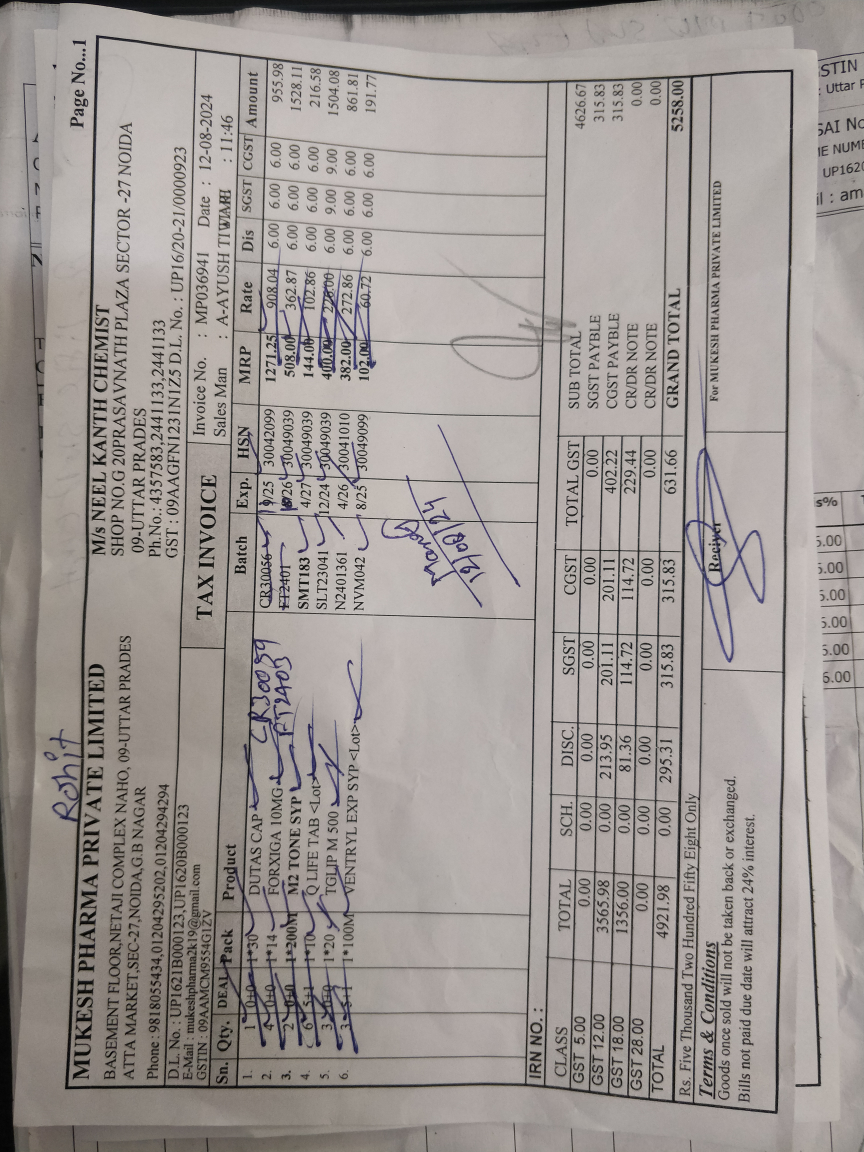 Rohit
Page No...1
MUKESH PHARMA PRIVATE LIMITED
BASEMENT FLOOR,NETAJI COMPLEX NAHO, 09-UTTAR PRADES
ATTA MARKET,SEC-27,NOIDA,G.B NAGAR
Phone : 9818055434,01204295202,01204294294
D.L. No. : UP1621B000123,UP1620B000123
E-Mail : mukeshpharma2k19@gmail.com
GSTIN : 09AAMCM9554G1ZV
M/s NEEL KANTH CHEMIST
SHOP NO.G 20PRASAVNATH PLAZA SECTOR -27 NOIDA
09-UTTAR PRADES
Ph.No.: 4357583,2441133,2441133
GST : 09AAGFN1231N1Z5 D.L. No. : UP16/20-21/0000923
TAX INVOICE
Invoice No. : MP036941 Date : 12-08-2024
Sales Man : A-AYUSH TIWARI : 11:46
Sn. Qty. DEAL Pack Product Batch Exp. HSN MRP Rate Dis SGST CGST Amount
1. 1 0+0 1*30 DUTAS CAP CR30059 CR30056 9/25 30042099 1271.25 908.04 6.00 6.00 6.00 955.98
2. 4 0+0 1*14 FORXIGA 10MG FT2403 FT2401 /26 30049039 508.00 362.87 6.00 6.00 6.00 1528.11
3. 2 0+0 1*200M M2 TONE SYP SMT183 4/27 30049039 144.00 102.86 6.00 6.00 6.00 216.58
4. 6 5+1 1*10 Q LIFE TAB <Lot> SLT23041 12/24 30049039 226.00 6.00 9.00 9.00 1504.08
5. 3 0+0 1*20 TGLIP M 500 N2401361 4/26 30041010 382.00 272.86 6.00 6.00 6.00 861.81
6. 3 5+1 1*100M VENTRYL EXP SYP <Lot> NVM042 8/25 30049099 102.00 60.72 6.00 6.00 6.00 191.77
IRN NO. :
CLASS TOTAL SCH. DISC. SGST CGST TOTAL GST
GST 5.00 0.00 0.00 0.00 0.00 0.00 0.00
GST 12.00 3565.98 0.00 213.95 201.11 201.11 402.22
GST 18.00 1356.00 0.00 81.36 114.72 114.72 229.44
GST 28.00 0.00 0.00 0.00 0.00 0.00 0.00
TOTAL 4921.98 0.00 295.31 315.83 315.83 631.66
SUB TOTAL 4626.67
SGST PAYBLE 315.83
CGST PAYBLE 315.83
CR/DR NOTE 0.00
CR/DR NOTE 0.00
GRAND TOTAL 5258.00
Rs. Five Thousand Two Hundred Fifty Eight Only
Terms & Conditions
Goods once sold will not be taken back or exchanged.
Bills not paid due date will attract 24% interest.
Reciver
For MUKESH PHARMA PRIVATE LIMITED
STIN
: Uttar P
SAI No
NE NUME
UP1620
il : am
s%
5.00
5.00
5.00
5.00
5.00
6.00